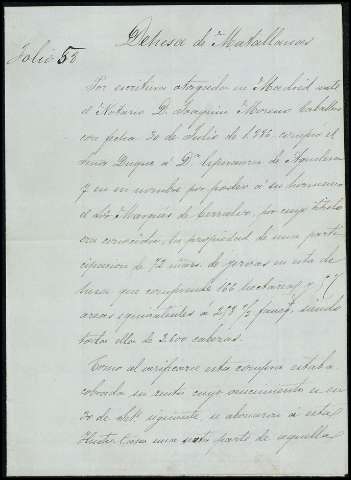 Dehesa de Matallanas
Folio 58
Por escritura otorgada en Madrid ante
el Notario D. Joaquin Moreno Caballero
con fecha 30 de Julio de 1.886 compró el
Señor Duque a Dª Esperanza de Aguilera
y en su nombre por poder á su hermano
el Sor Marqués de Cerralvo, por cuyo título
era conocido, la propiedad de una parti
cipacion de 72 de yervas en esta de
hesa que comprende 166 hectareas y 57
areas equivalentes á 258 1/2 faneg.s siendo
todas ellas de 2.600 cabezas.
Como al verificarse esta compra estaba
cobrada su renta cuyo vencimiento es en
30 de Sbre. siguiente se abonaron á esta
Ilustre Casa una sexta parte de aquella